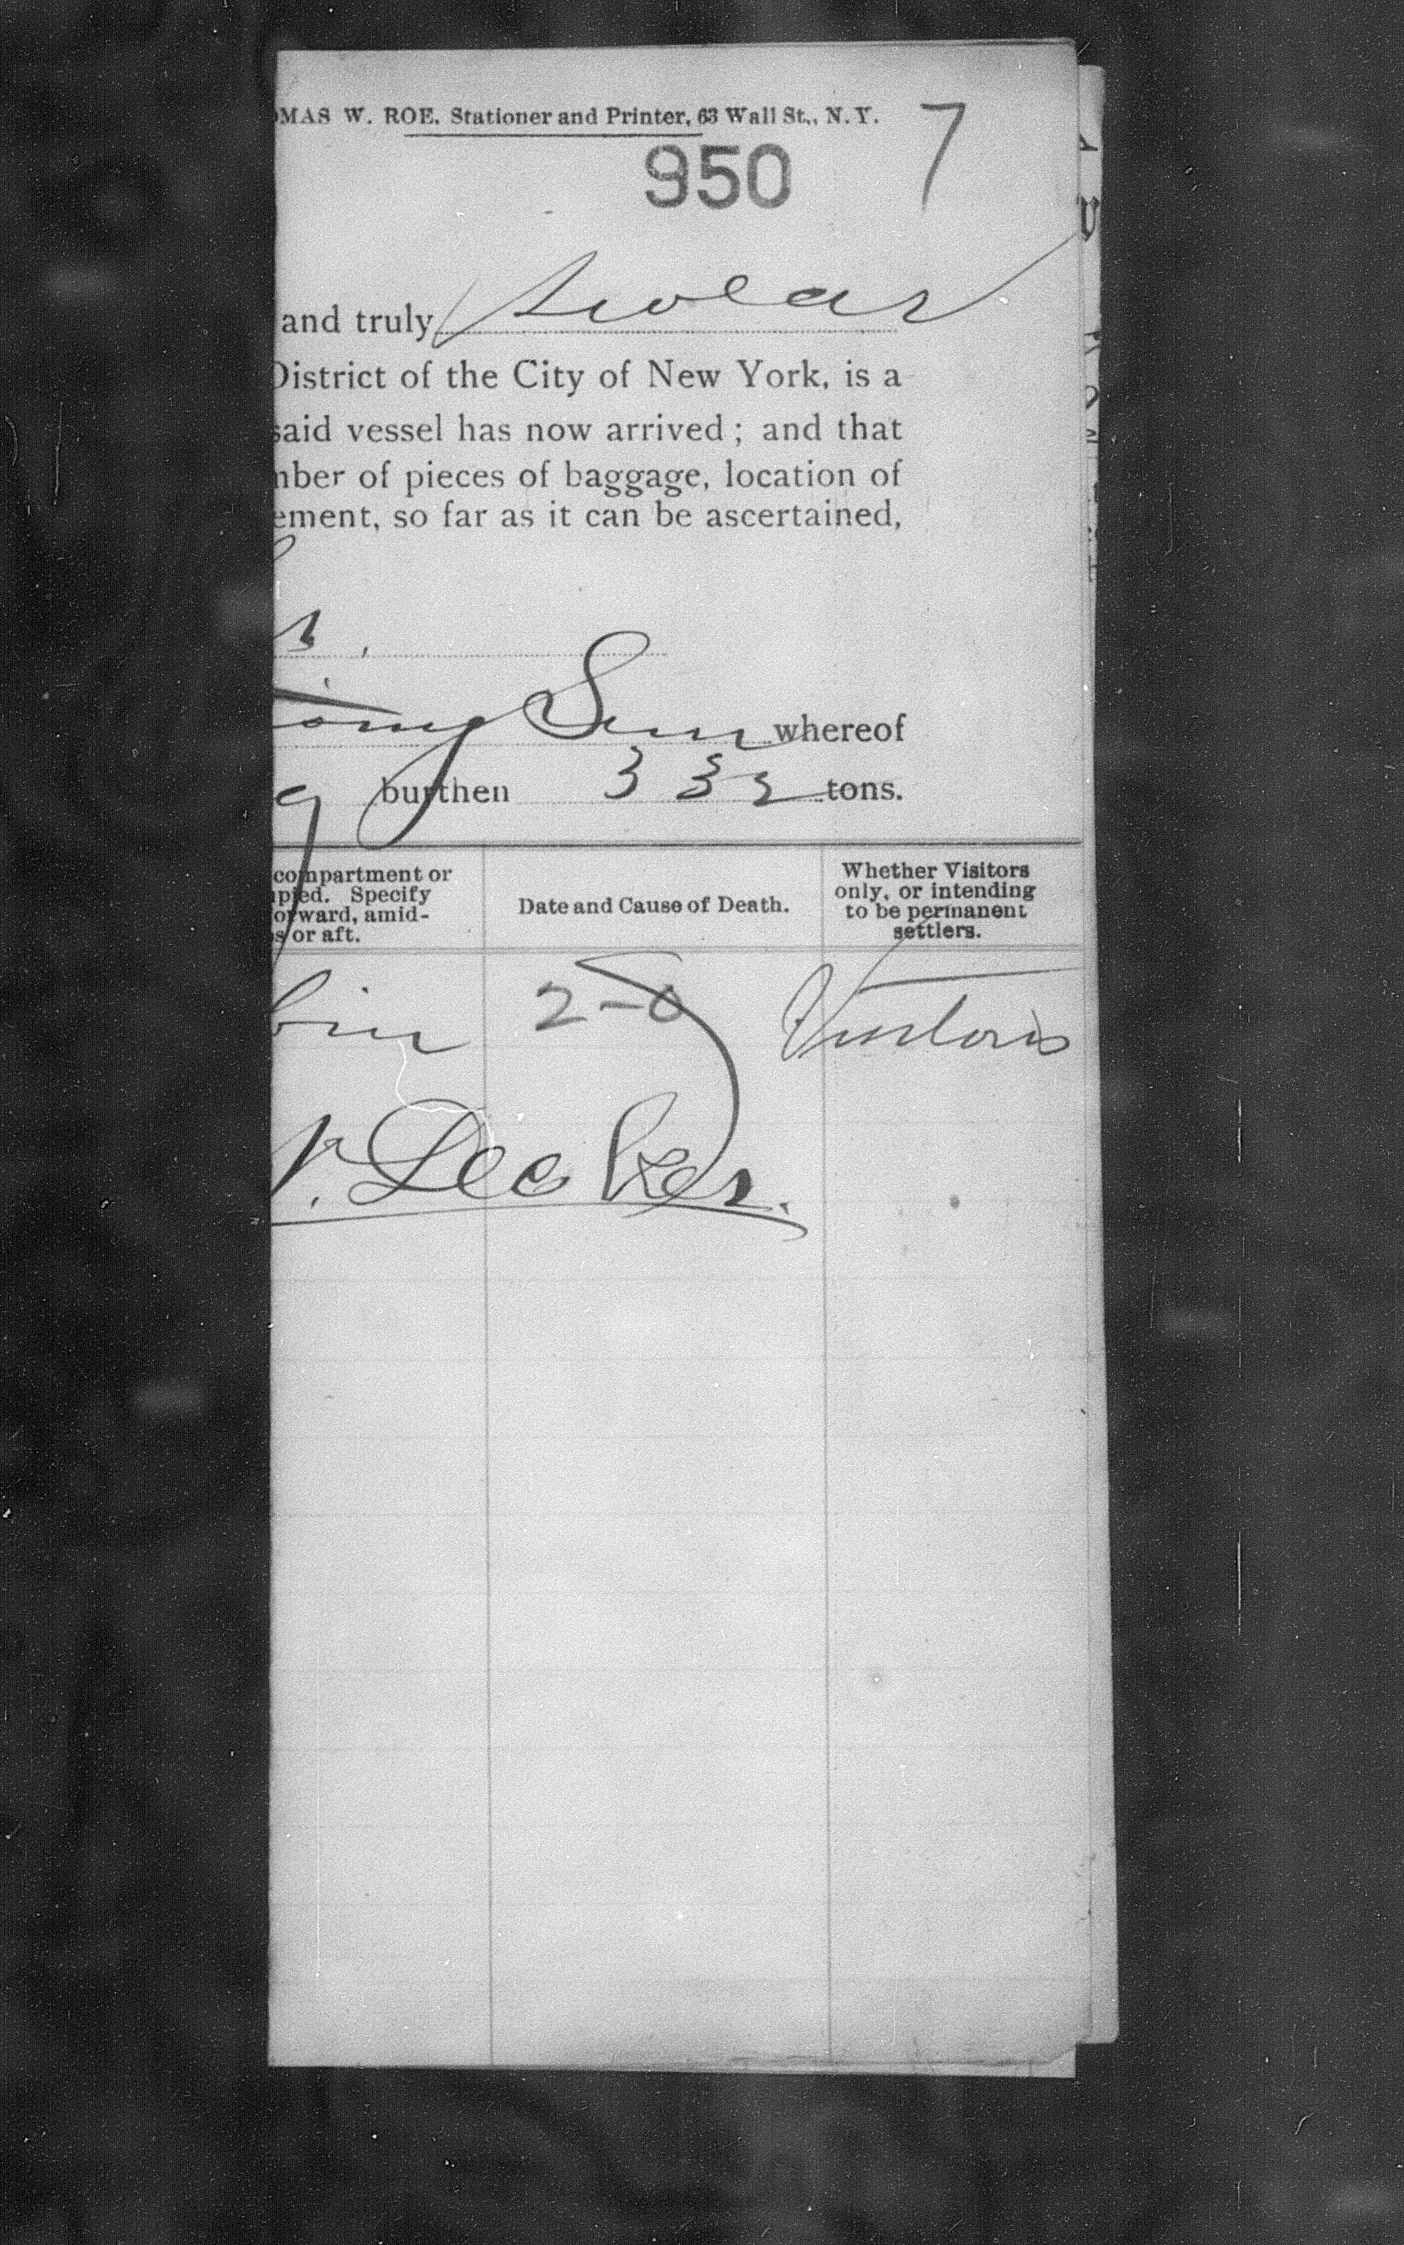 MAS W. ROE. Stationer and Printer, 63 Wall St., N.Y. 7
950
and truly swear
District of the City of New York, is a
said vessel has now arrived; and that
nber of pieces of baggage, location of
ement, so far as it can be ascertained,
s,
Sun whereof
g burthen 332 tons.
compartment or
upied. Specify
forward, amid-
s or aft.
Date and Cause of Death.
Whether Visitors
only, or intending
to be permanent
settlers.
bin 2-0 Visitors
Decker.